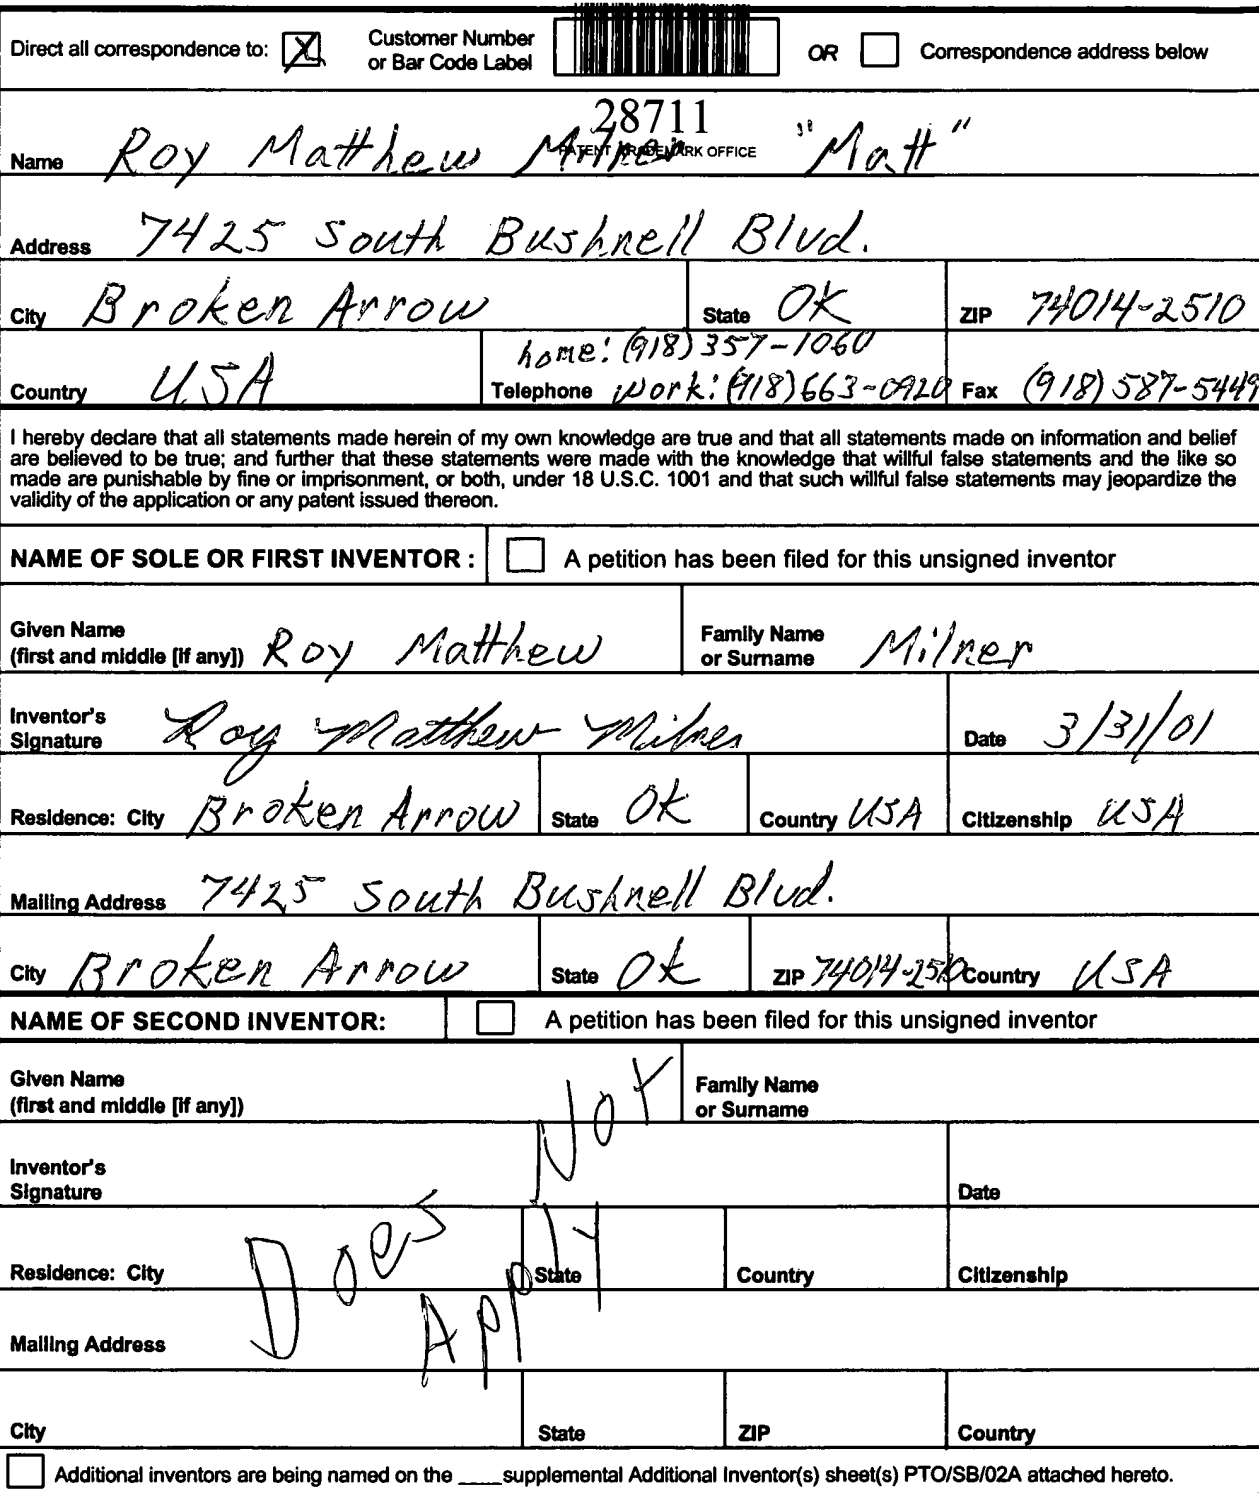 Direct all correspondence to: X Customer Number or Bar Code Label OR Correspondence address below
28711
PATENT TRADEMARK OFFICE
Name Roy Matthew Milner "Matt"
Address 7425 South Bushnell Blvd.
City Broken Arrow State OK ZIP 74014-2510
home: (918) 357-1060
Country USA Telephone work: (918) 663-0920 Fax (918) 587-5449
I hereby declare that all statements made herein of my own knowledge are true and that all statements made on information and belief
are believed to be true; and further that these statements were made with the knowledge that willful false statements and the like so
made are punishable by fine or imprisonment, or both, under 18 U.S.C. 1001 and that such willful false statements may jeopardize the
validity of the application or any patent issued thereon.
NAME OF SOLE OR FIRST INVENTOR : A petition has been filed for this unsigned inventor
Given Name
(first and middle [if any]) Roy Matthew
Family Name
or Surname Milner
Inventor's
Signature Roy Matthew Milner
Date 3/31/01
Residence: City Broken Arrow State OK Country USA Citizenship USA
Mailing Address 7425 South Bushnell Blvd.
City Broken Arrow State OK ZIP 74014-2510 Country USA
NAME OF SECOND INVENTOR: A petition has been filed for this unsigned inventor
Given Name
(first and middle [if any])
Family Name
or Surname
Inventor's
Signature
Date
Does Not
Apply
Residence: City State Country Citizenship
Mailing Address
City State ZIP Country
Additional inventors are being named on the ____supplemental Additional Inventor(s) sheet(s) PTO/SB/02A attached hereto.